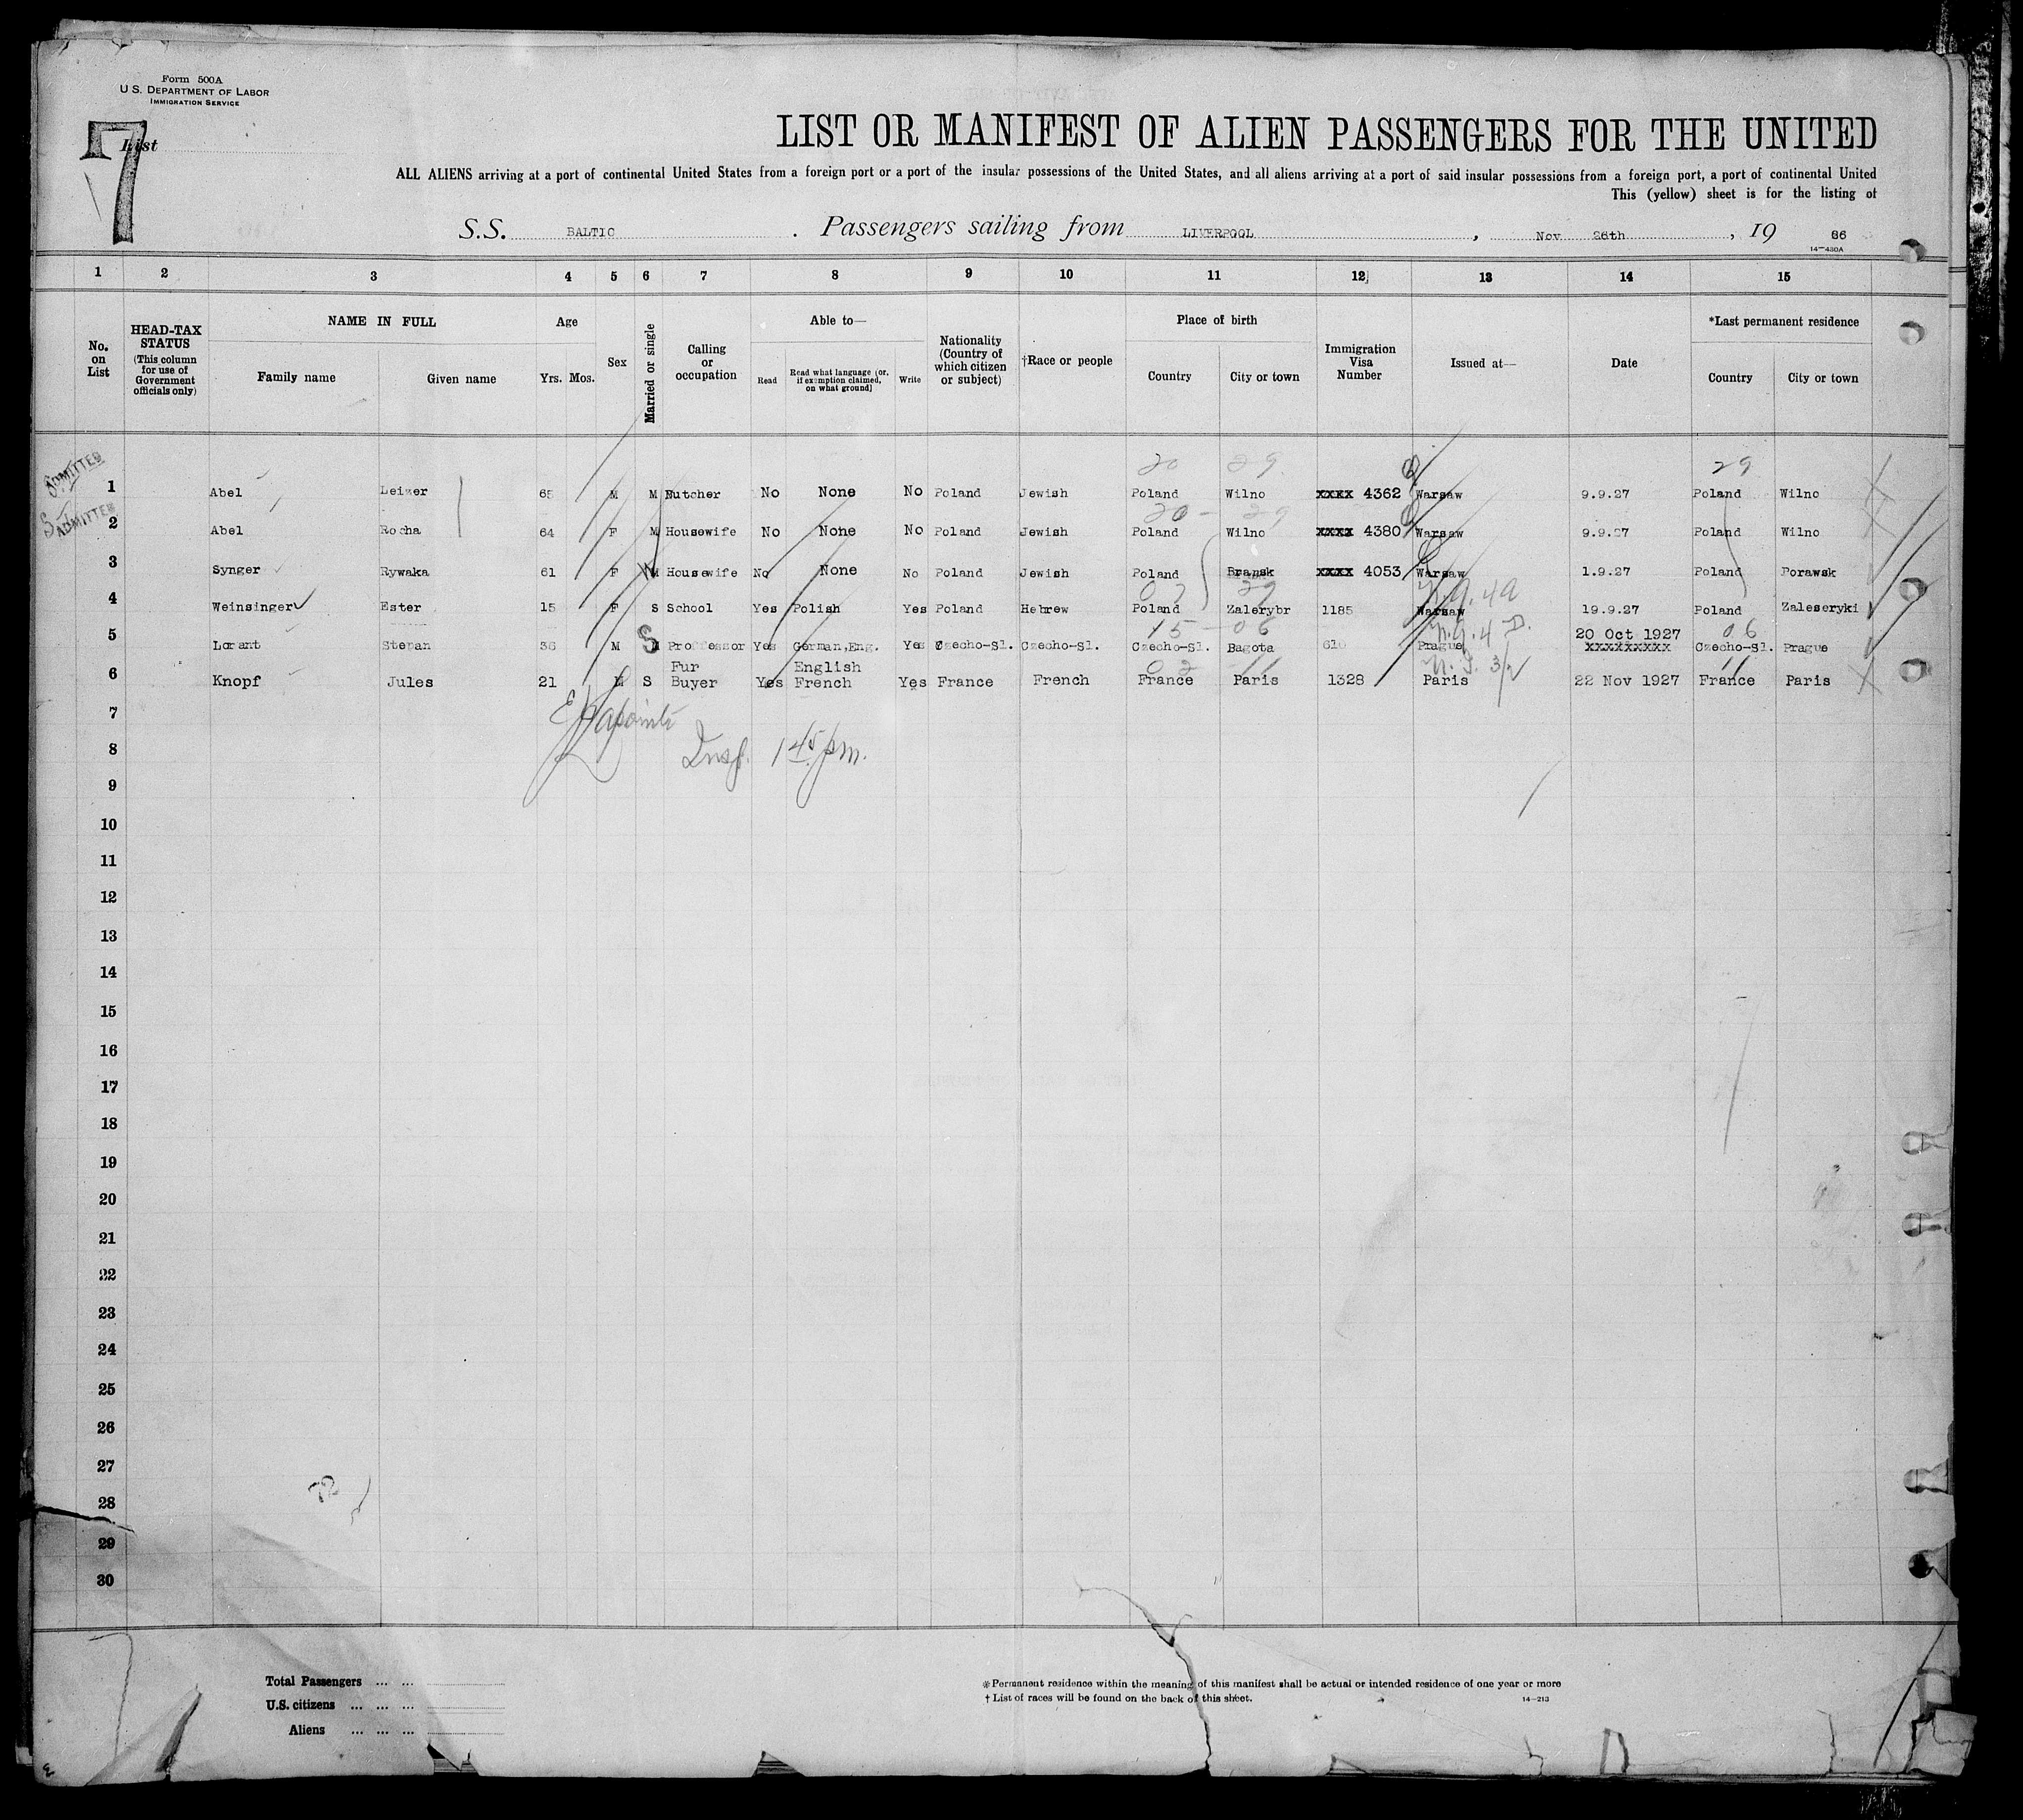 Form 500A
U.S. DEPARTMENT OF LABOR
IMMIGRATION SERVICE
7
List
LIST OR MANIFEST OF ALIEN PASSENGERS FOR THE UNITED
ALL ALIENS arriving at a port of continental United States from a foreign port or a port of the insular possessions of the United States, and all aliens arriving at a port of said insular possessions from a foreign port, a port of continental United
This (yellow) sheet is for the listing of
S.S. BALTIC . Passengers sailing from LIVERPOOL , Nov 26th , 19
14—430A
1 2 3 4 5 6 7 8 9 10 11 12 13 14 15
No. on List
HEAD-TAX STATUS (This column for use of Government officials only)
NAME IN FULL
Family name Given name
Age
Yrs. Mos.
Sex
Married or single
Calling or occupation
Able to—
Read Read what language (or, if exemption claimed, on what ground) Write
Nationality (Country of which citizen or subject)
†Race or people
Place of birth
Country City or town
Immigration Visa Number
Issued at—
Date
*Last permanent residence
Country City or town
20 29 29
ADMITTED 1 Abel Leizer 65 M M Butcher No None No Poland Jewish Poland Wilno XXXX 4362 Warsaw 9.9.27 Poland Wilno
20 - 29
ADMITTED 2 Abel Rocha 64 F M Housewife No None No Poland Jewish Poland Wilno XXXX 4380 Warsaw 9.9.27 Poland Wilno
3 Synger Rywaka 61 F M Housewife No None No Poland Jewish Poland Bransk XXXX 4053 Warsaw 1.9.27 Poland Porawsk
07 29
4 Weinsinger Ester 15 F S School Yes Polish Yes Poland Hebrew Poland Zalerybr 1185 Warsaw 19.9.27 Poland Zaleseryki
15 - 06 20 Oct 1927 06
5 Lorant Stepan 36 M S Proffessor Yes German,Eng. Yes Czecho-Sl. Czecho-Sl. Czecho-Sl. Bagota 610 Prague XXXXXXXXX Czecho-Sl. Prague
Fur English 02 11 11
6 Knopf Jules 21 M S Buyer Yes French Yes France French France Paris 1328 Paris 22 Nov 1927 France Paris
7
8 Insp. 1 45 pm.
9
10
11
12
13
14
15
16
17
18
19
20
21
22
23
24
25
26
27
28
29
30
Total Passengers ... ...
U.S. citizens ... ... ...
Aliens ... ... ...
*Permanent residence within the meaning of this manifest shall be actual or intended residence of one year or more
†List of races will be found on the back of this sheet. 14—213